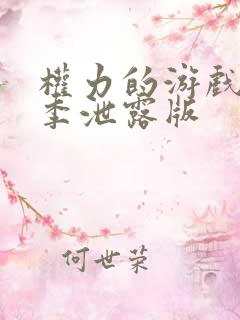 權力的游戲
季泄露版
何世荣